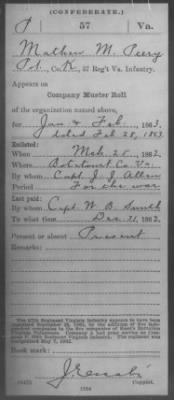 (CONFEDERATE.)
P 57 Va.
Mathew M. Perry
Pvt., Co. K, 57 Reg't Va. Infantry.
Appears on
Company Muster Roll
of the organization named above,
for Jan & Feb, 1863.
dated Feb 28, 1863
Enlisted:
When Mch. 25, 1862.
Where Botetourt Co Va.
By whom Capt. J. J. Allen
Period For the war
Last paid:
By whom Capt. W. B. Smith
To what time Dec. 31, 1862.
Present or absent Present
Remarks:
Book mark:
Copyist.